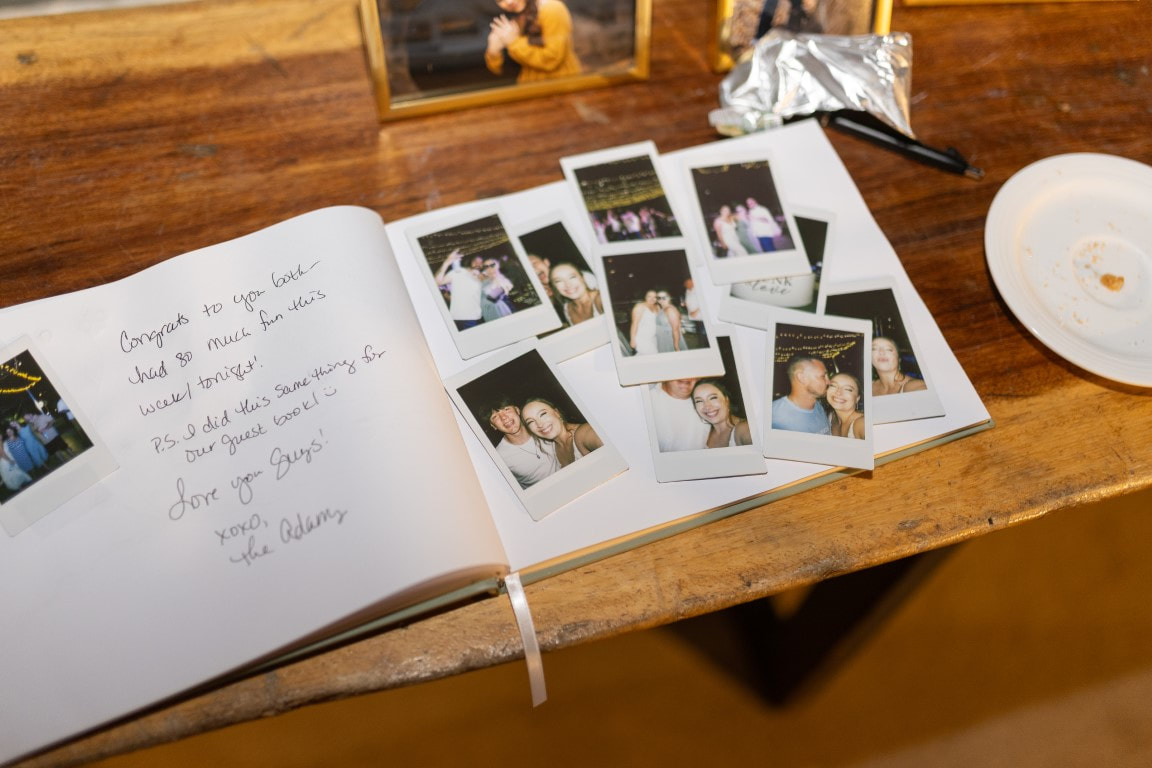 Congrats to you both
had so much fun this
week/tonight!
P.S. I did this same thing for
our guest book! :)
Love you Guys!
xoxo,
the Adams